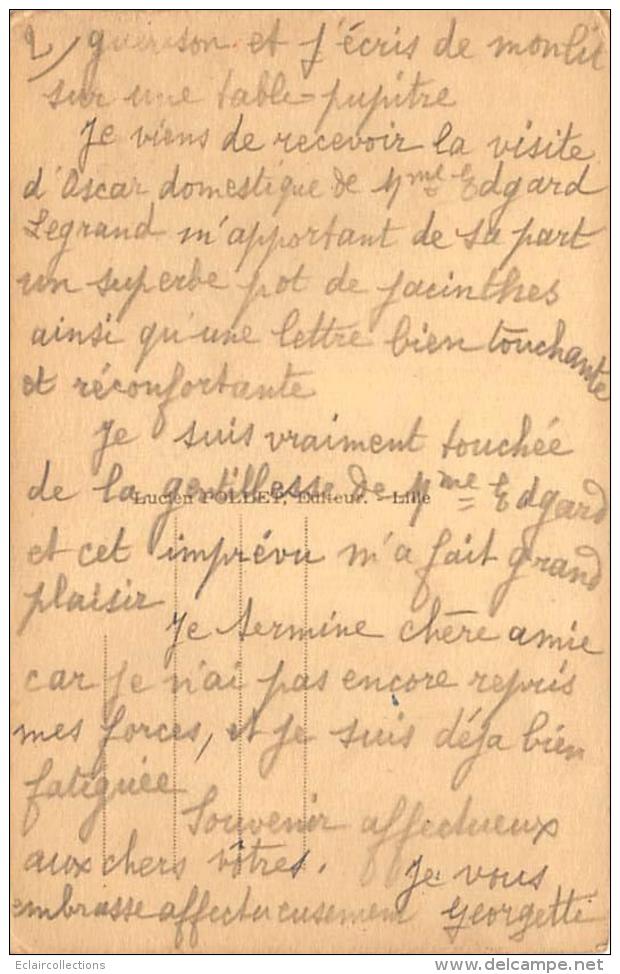 2/ guérison et j'écris de mon lit
sur une table-pupitre
Je viens de recevoir la visite
d'Oscar domestique de Mme Edgard
Legrand m'apportant de sa part
un superbe pot de jacinthes
ainsi qu'une lettre bien touchante
et réconfortante
Je suis vraiment touchée
de la gentillesse de Mme Edgard
Lucien POLLET, Editeur. - Lille
et cet imprévu m'a fait grand
plaisir
Je termine chère amie
car je n'ai pas encore repris
mes forces, et je suis déja bien
fatiguée
Souvenir affectueux
aux chers vôtres. Je vous
embrasse affectueusement Georgette
Eclaircollections
www.delcampe.net